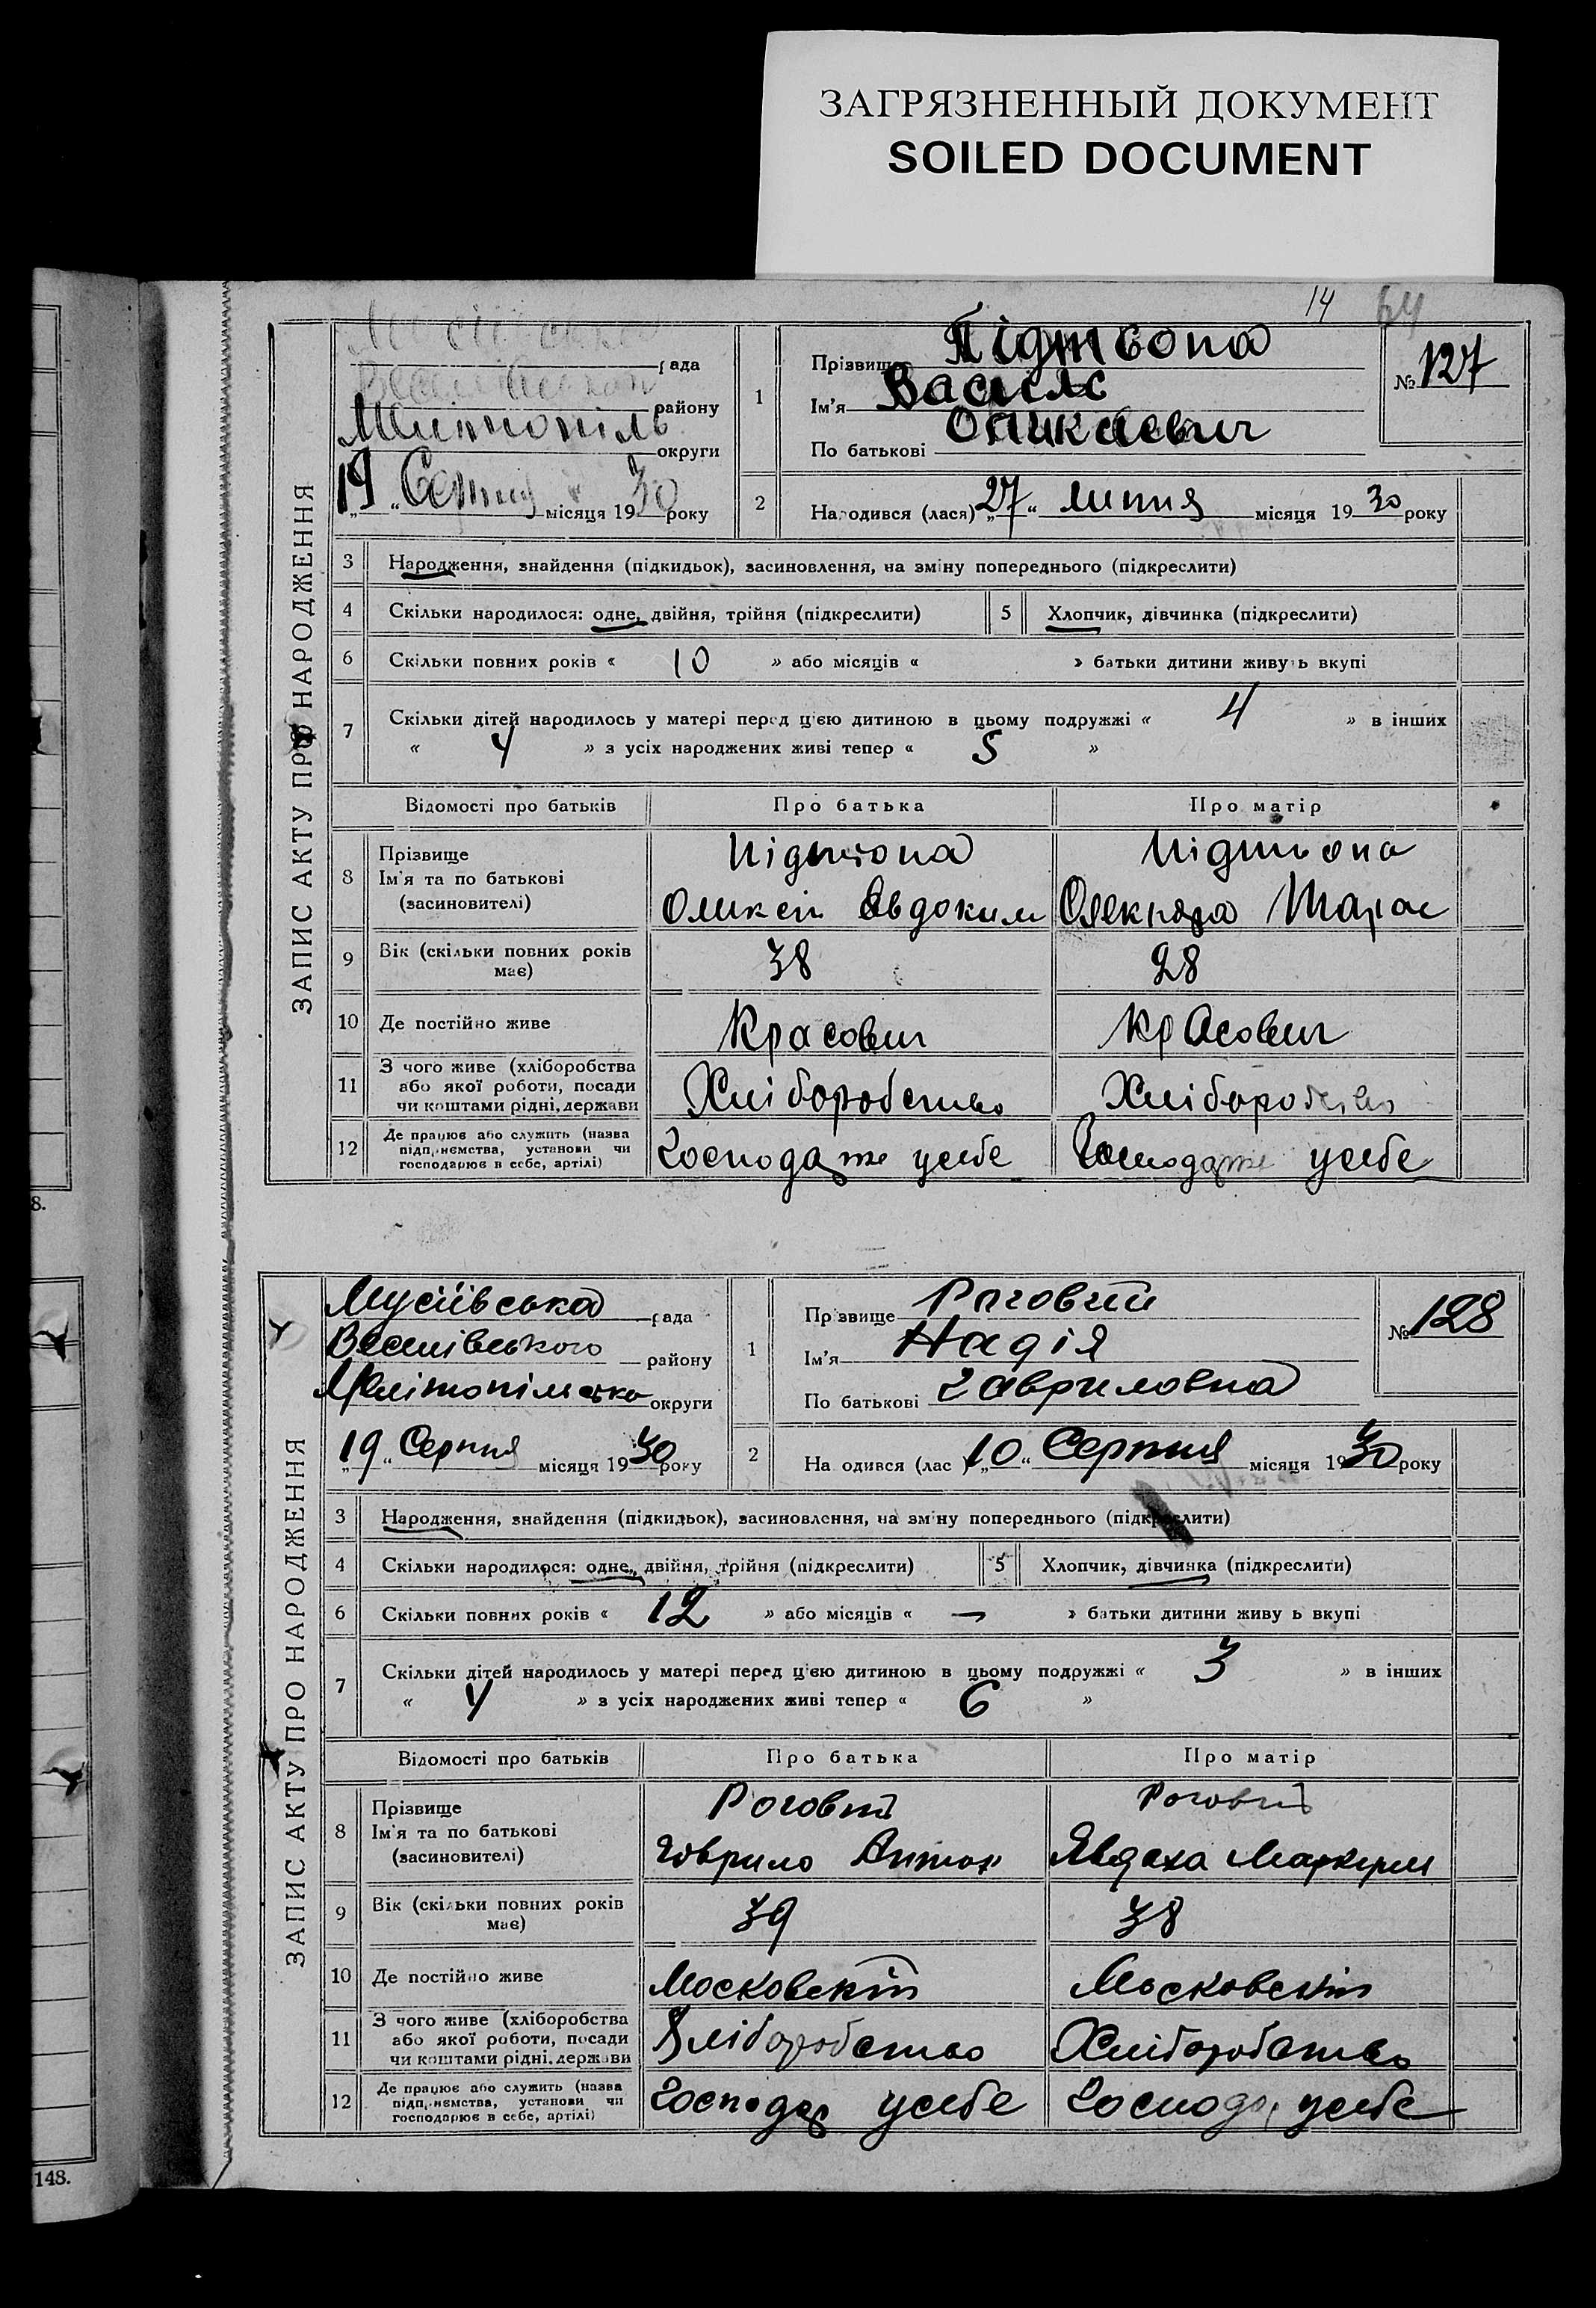 ЗАГРЯЗНЕННЫЙ ДОКУМЕНТ
SOILED DOCUMENT
14 64
ЗАПИС АКТУ ПРО НАРОДЖЕННЯ
рада
району
Мелітопіль округи
„19“ Серпня місяця 1930 року
1
Прізвище Підтьопа
Ім'я Василь
По батькові
№ 127
2
Народився (лася) „27“ липня місяця 1930 року
3 Народження, знайдення (підкидьок), засиновлення, на зміну попереднього (підкреслити)
4 Скільки народилося: одне, двійня, трійня (підкреслити) 5 Хлопчик, дівчинка (підкреслити)
6 Скільки повних років « 10 » або місяців « » батьки дитини живуть вкупі
7 Скільки дітей народилось у матері перед цією дитиною в цьому подружжі « 4 » в інших
« У » з усіх народжених живі тепер « 5 »
Відомості про батьків Про батька Про матір
8 Прізвище
Ім'я та по батькові
(засиновителі)
Підтьопа
Оликсій Явдоким
Підтьопа
Олекндра Тарас
9 Вік (скільки повних років має) 38 28
10 Де постійно живе Красович Красович
11 З чого живе (хліборобства
або якої роботи, посади
чи коштами рідні, держави
Хліборобство Хліборобство
12 Де працює або служить (назва
підприємства, установи чи
господарює в себе, артілі)
усебе усебе
8.
ЗАПИС АКТУ ПРО НАРОДЖЕННЯ
Мусіївська рада
Веселівського району
Мелітопільсько округи
„19“ Серпня місяця 1930 року
1
Прізвище Роговий
Ім'я Надія
По батькові Гавриловна
№ 128
2
На одився (лас ) „10“ Серпня місяця 1930 року
3 Народження, знайдення (підкидьок), засиновлення, на зміну попереднього (підкреслити)
4 Скільки народилося: одне, двійня, трійня (підкреслити) 5 Хлопчик, дівчинка (підкреслити)
6 Скільки повних років « 12 » або місяців « — » батьки дитини живу ь вкупі
7 Скільки дітей народилось у матері перед цією дитиною в цьому подружжі « 3 » в інших
« У » з усіх народжених живі тепер « 6 »
Відомості про батьків Про батька Про матір
8 Прізвище
Ім'я та по батькові
(засиновителі)
Роговий
Говрило Антон
Роговий
Явдоха
9 Вік (скільки повних років має) 39 38
10 Де постійно живе Московський Московський
11 З чого живе (хліборобства
або якої роботи, посади
чи коштами рідні, держави
Хліборобство Хліборобство
12 Де працює або служить (назва
підприємства, установи чи
господарює в себе, артілі)
Господар усебе Господар усебе
148.